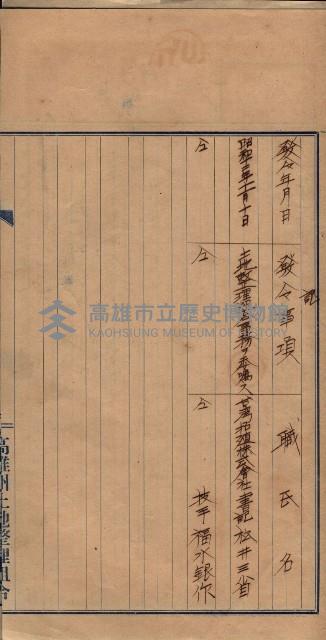 記
發令年月日　發令事項　職氏名
昭和三年十一月十日　土地整理組合事務ヲ委囑ス　台灣拓殖株式會社書記　松井三省
仝　仝　仝　技手　福水銀作
高雄州土地整理組合
高雄市立歷史博物館
KAOHSIUNG MUSEUM OF HISTORY